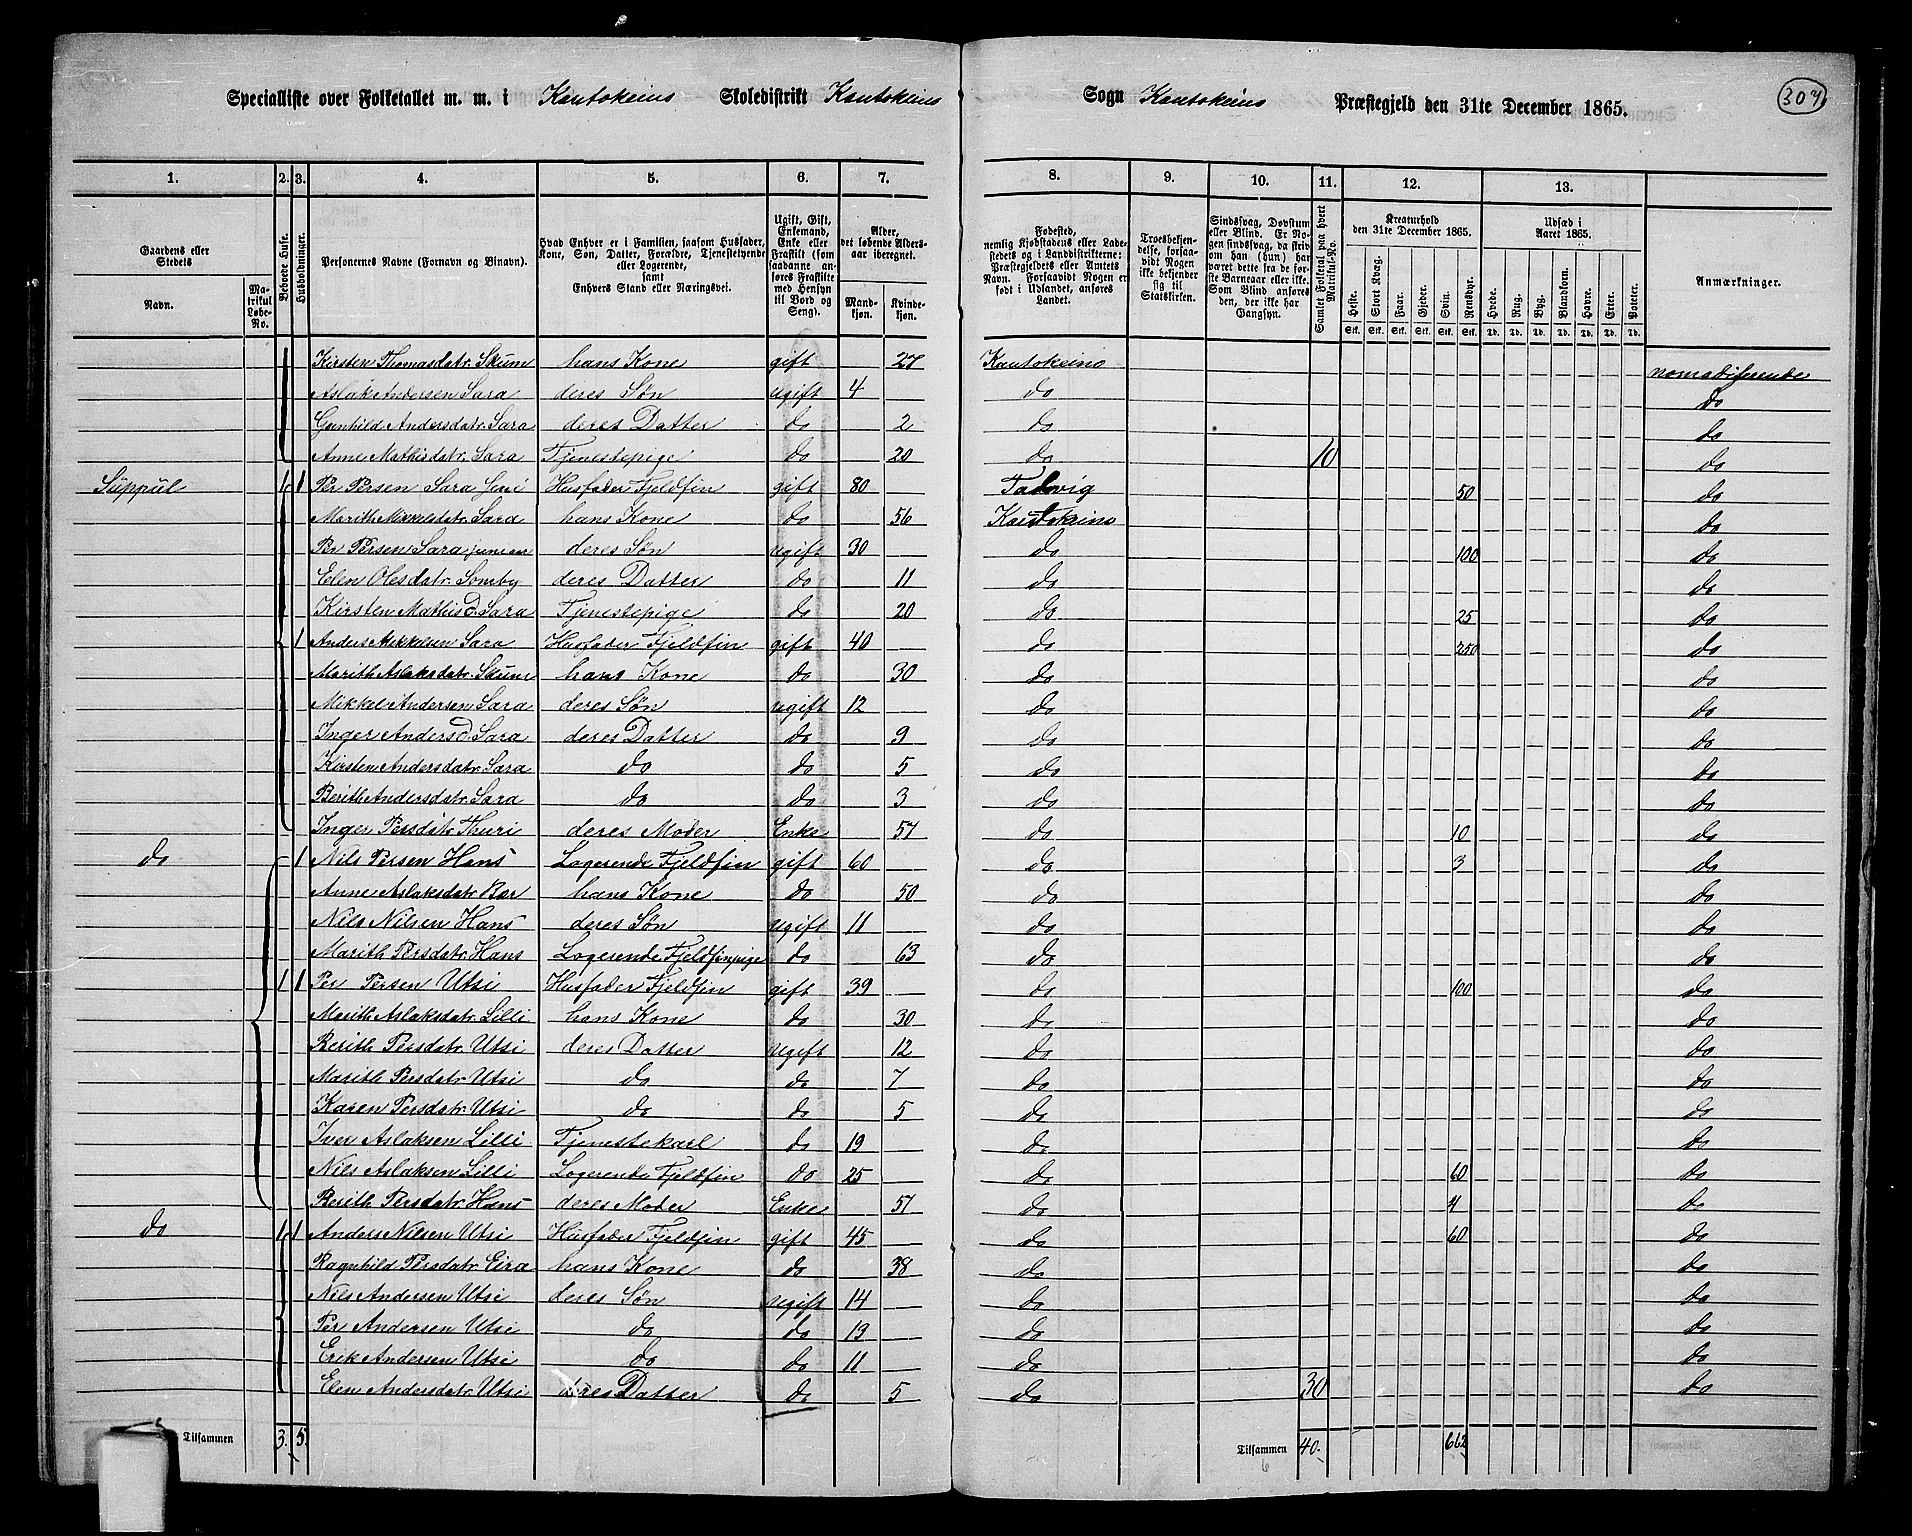 Specialliste over Folketallet m. m. i Kautokeins Skoledistrikt Kautokeins Sogn Kautokeins Præstegjeld den 31te December 1865.
307
1. 2. 3. 4. 5. 6. 7. 8. 9. 10. 11. 12. 13.
Gaardens eller Stedets
Navn.
Matrikul Løbe-No.
Beboede Huse.
Husholdninger.
Personernes Navne (Fornavn og Binavn).
Hvad Enhver er i Familien, saasom Husfader, Kone, Søn, Datter, Forældre, Tjenestetyende eller Logerende, samt Enhvers Stand eller Næringsvei.
Ugift, Gift, Enkemand, Enke eller Fraskilt (som saadanne anføres Fraskilte med Hensyn til Bord og Seng).
Alder, det løbende Aldersaar iberegnet.
Mandkjøn. Kvindekjøn.
Fødested, nemlig Kjøbstadens eller Ladestedets og i Landdistrikterne: Præstegjeldets eller Amtets Navn. Forsaavidt Nogen er født i Udlandet, anføres Landet.
Troesbekjendelse, forsaavidt Nogen ikke bekjender sig til Statskirken.
Sindssvag, Døvstum eller Blind. Er Nogen sindssvag, da skriv om han (hun) har været dette fra de første Barneaar eller ikke. Som Blind anføres den, der ikke har Gangsyn.
Samlet Folketal paa hvert Matrikul-No.
Kreaturhold den 31te December 1865.
Heste. Stort Kvæg. Faar. Gjeder. Svin. Rensdyr.
Stk. Stk. Stk. Stk. Stk. Stk.
Udsæd i Aaret 1865.
Hvede. Rug. Byg. Blandkorn. Havre. Erter. Poteter.
Td. Td. Td. Td. Td. Td. Td.
Anmærkninger.
Kirsten Thomasdatr. Skum hans Kone gift 27 Kautokeino nomadiserende
Aslak Andersen Sara deres Søn ugift 4 do do
Gunhild Andersdatr. Sara deres Datter do 2 do do
Anne Mathisdatr. Sara Tjenestepige do 20 do 10 do
Suppul 1 1 Per Persen Sara Husfader Fjeldfin gift 80 Talvig 50 do
Marith Mikkelsdatr. Sara hans Kone do 56 Kautokeino do
Per Persen Sara junior deres Søn ugift 30 do 100 do
Elen Olesdatr. Somby deres Datter do 11 do do
Kirsten Mathisd. Sara Tjenestepige do 20 do 25 do
1 Anders Mikkelsen Sara Husfader Fjeldfin gift 40 do 250 do
Marith Aslaksdatr. Skum hans Kone do 30 do do
Mikkel Andersen Sara deres Søn ugift 12 do do
Inger Andersd. Sara deres Datter do 9 do do
Kirsten Andersdatr. Sara do do 5 do do
Berith Andersdatr. Sara do do 3 do do
Inger Persdatr. Thuri deres Moder Enke 57 do 10 do
do 1 Nils Persen Hans Logerende Fjeldfin gift 60 do 3 do
Anne Aslaksdatr. Bær hans Kone do 50 do do
Nils Nilsen Hans deres Søn ugift 11 do do
Marith Persdatr. Hans Logerende Fjeldfinpige do 63 do do
1 1 Per Persen Utsi Husfader Fjeldfin gift 39 do 100 do
Marith Aslaksdatr. Lilli hans Kone do 30 do do
Berith Persdatr. Utsi deres Datter ugift 12 do do
Marith Persdatr. Utsi do do 7 do do
Karen Persdatr. Utsi do do 5 do do
Iver Aslaksen Lilli Tjenestekarl do 19 do do
Nils Aslaksen Lilli Logerende Fjeldfin do 25 do 60 do
Berith Persdatr. Hans deres Moder Enke 57 do 4 do
do 1 1 Anders Nilsen Utsi Husfader Fjeldfin gift 45 do 60 do
Ragnhild Persdatr. Eira hans Kone do 38 do do
Nils Andersen Utsi deres Søn ugift 14 do do
Per Andersen Utsi do do 13 do do
Erik Andersen Utsi do do 11 do do
Elen Andersdatr. Utsi deres Datter do 5 do 30 do
Tilsammen 3. 5. Tilsammen 40. 662
6